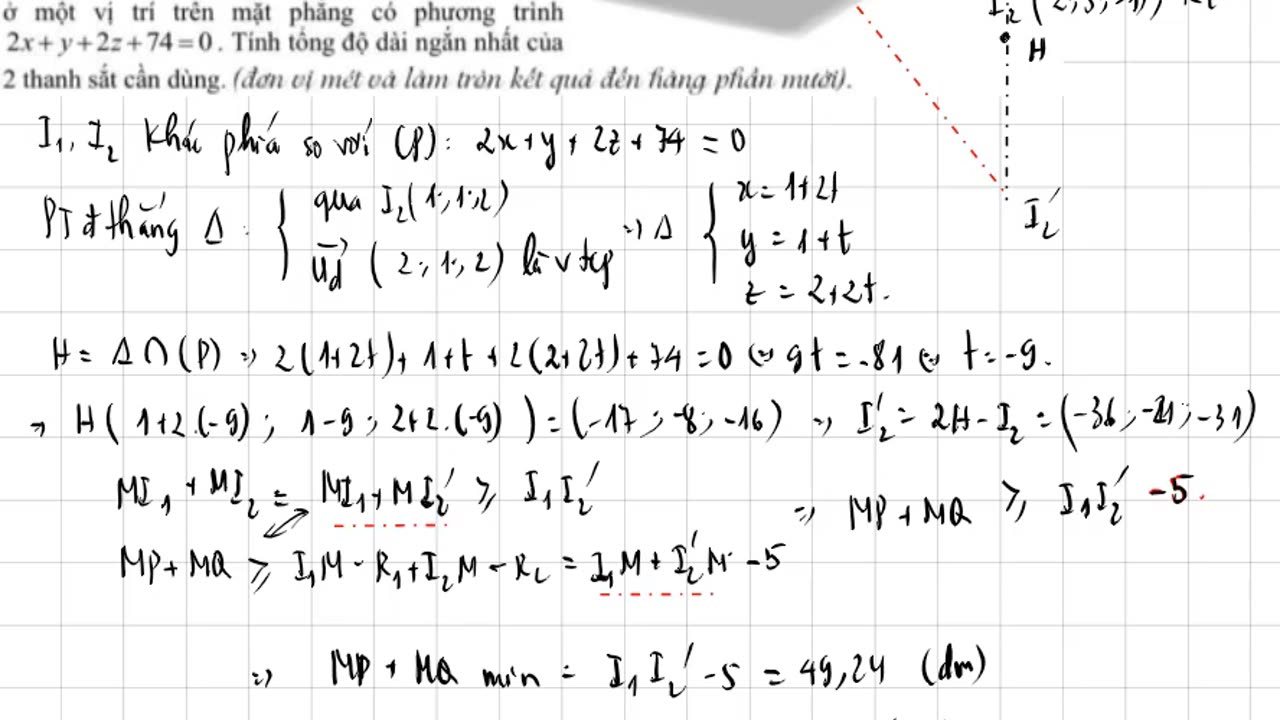 ở một vị trí trên mặt phẳng có phương trình
2x + y + 2z + 74 = 0. Tính tổng độ dài ngắn nhất của
2 thanh sắt cần dùng. (đơn vị mét và làm tròn kết quả đến hàng phần mười).
H
I₂'
I₁, I₂ khác phía so với (P): 2x + y + 2z + 74 = 0
PT đ thẳng Δ: { qua I₂(1;1;2) ; u⃗d (2;1;2) là vtcp => Δ { x = 1+2t ; y = 1+t ; z = 2+2t.
H = Δ ∩ (P) => 2(1+2t) + 1+t + 2(2+2t) + 74 = 0 <=> 9t = -81 <=> t = -9.
=> H( 1+2.(-9); 1-9; 2+2.(-9) ) = (-17; -8; -16) => I₂' = 2H - I₂ = (-36; -21; -31)
MI₁ + MI₂ = MI₁ + MI₂' ≥ I₁I₂' => MP + MQ ≥ I₁I₂' -5.
MP + MQ ≥ I₁M - R₁ + I₂M - R₂ = I₁M + I₂'M - 5
=> MP + MQ min = I₁I₂' - 5 = 49,24 (dm)